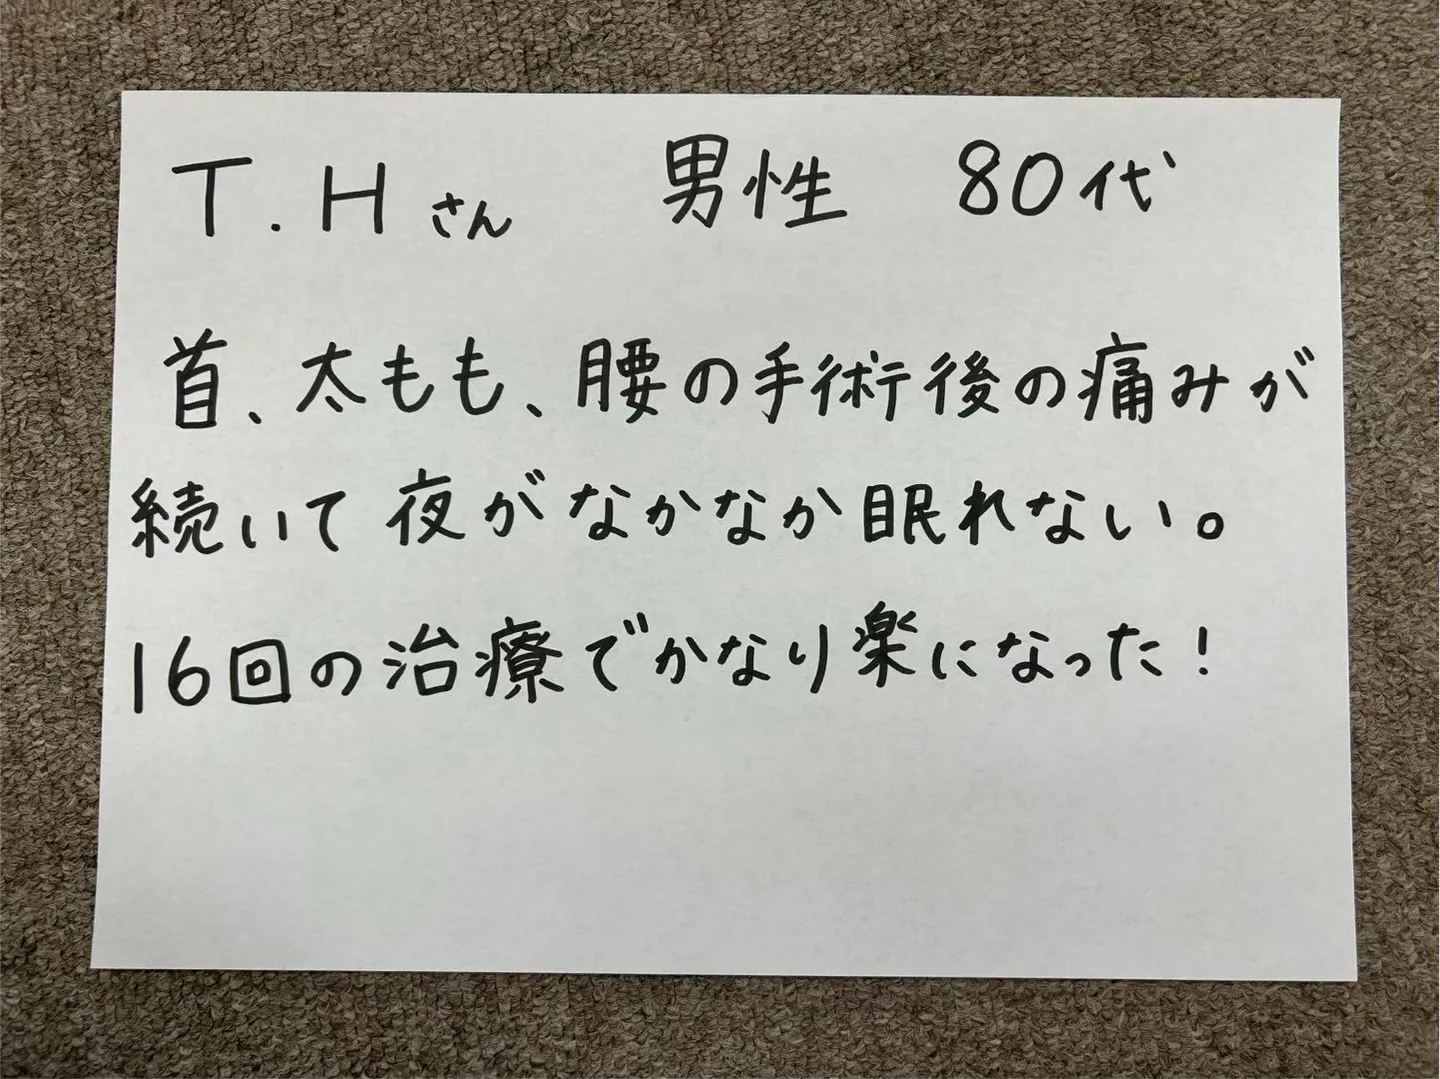 T.Hさん 男性 80代
首、太もも、腰の手術後の痛みが
続いて夜がなかなか眠れない。
16回の治療でかなり楽になった！